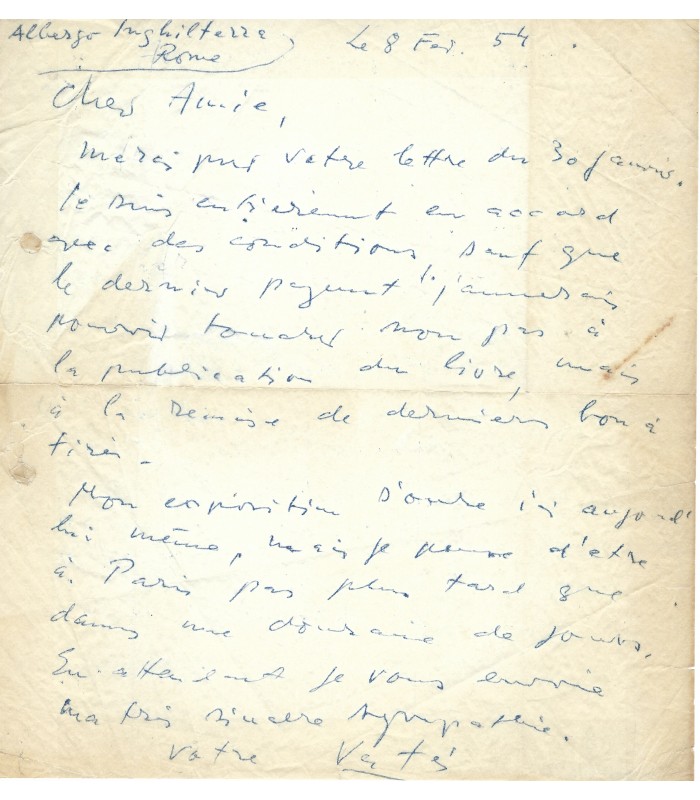 Albergo Inghilterra
Rome
Le 8 Fev. 54.
Cher Amie,
Merci pour votre lettre du 30 Janvier.
Je suis entièrement en accord
avec des conditions, sauf que
le dernier payement j'aimerais
pouvoir toucher non pas à
la publication du livre, mais
à la remise de derniers bon à
tirer.
Mon exposition s'ouvre ici aujourd'
hui même, mais je pense d'être
à Paris pas plus tard que
dans une douzaine de jours.
En attendant je vous envoie
ma très sincère sympathie.
Votre Vertès